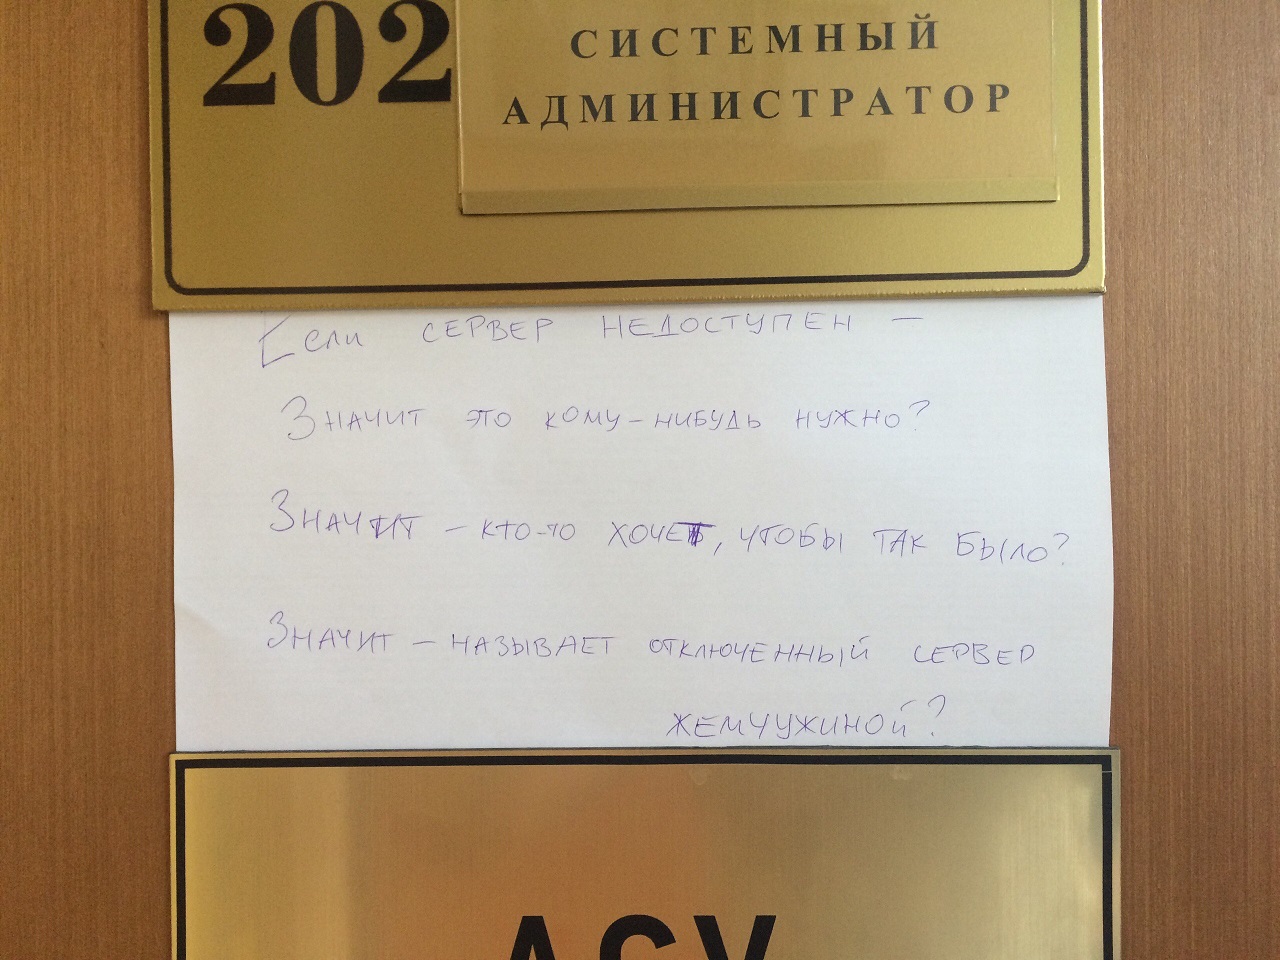 202
СИСТЕМНЫЙ
АДМИНИСТРАТОР
Если СЕРВЕР НЕДОСТУПЕН —
ЗНАЧИТ ЭТО КОМУ-НИБУДЬ НУЖНО?
ЗНАЧИТ — КТО-ТО ХОЧЕТ, ЧТОБЫ ТАК БЫЛО?
ЗНАЧИТ — НАЗЫВАЕТ ОТКЛЮЧЕННЫЙ СЕРВЕР
ЖЕМЧУЖИНОЙ?
АСУ